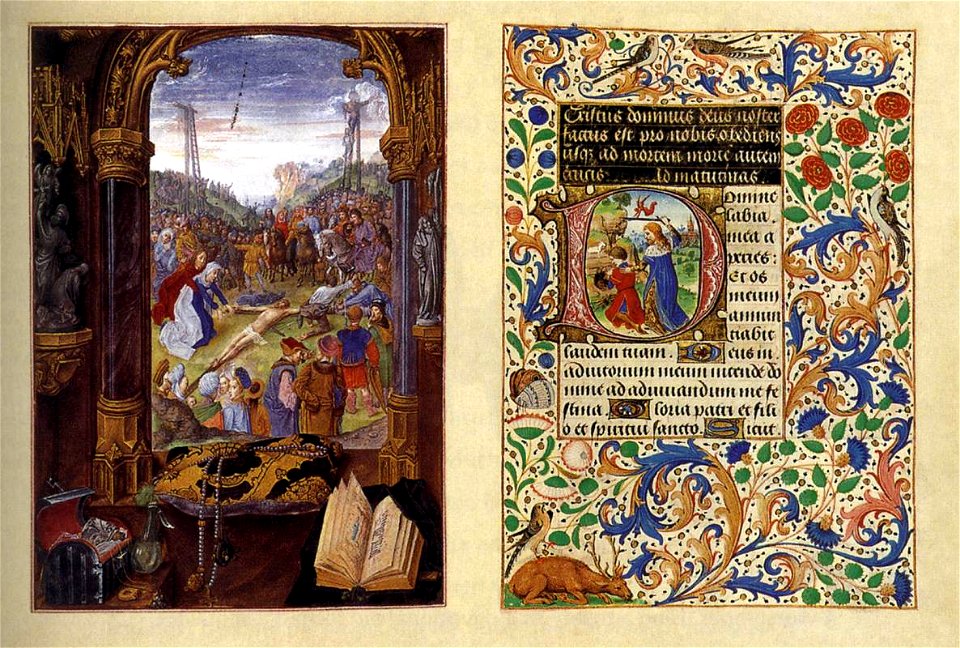 Cristus dominus deus noster
factus est pro nobis obediens
usq; ad mortem morte autem
crucis. Ad matutinas.
Domine
labia
mea a
peries:
Et os
meum
annun
tiabit
laudem tuam. Deus in
adiutorium meum intende do
mine ad adiuvandum me fe
stina. Gloria patri et fili
o et spiritui sancto. Sicut.